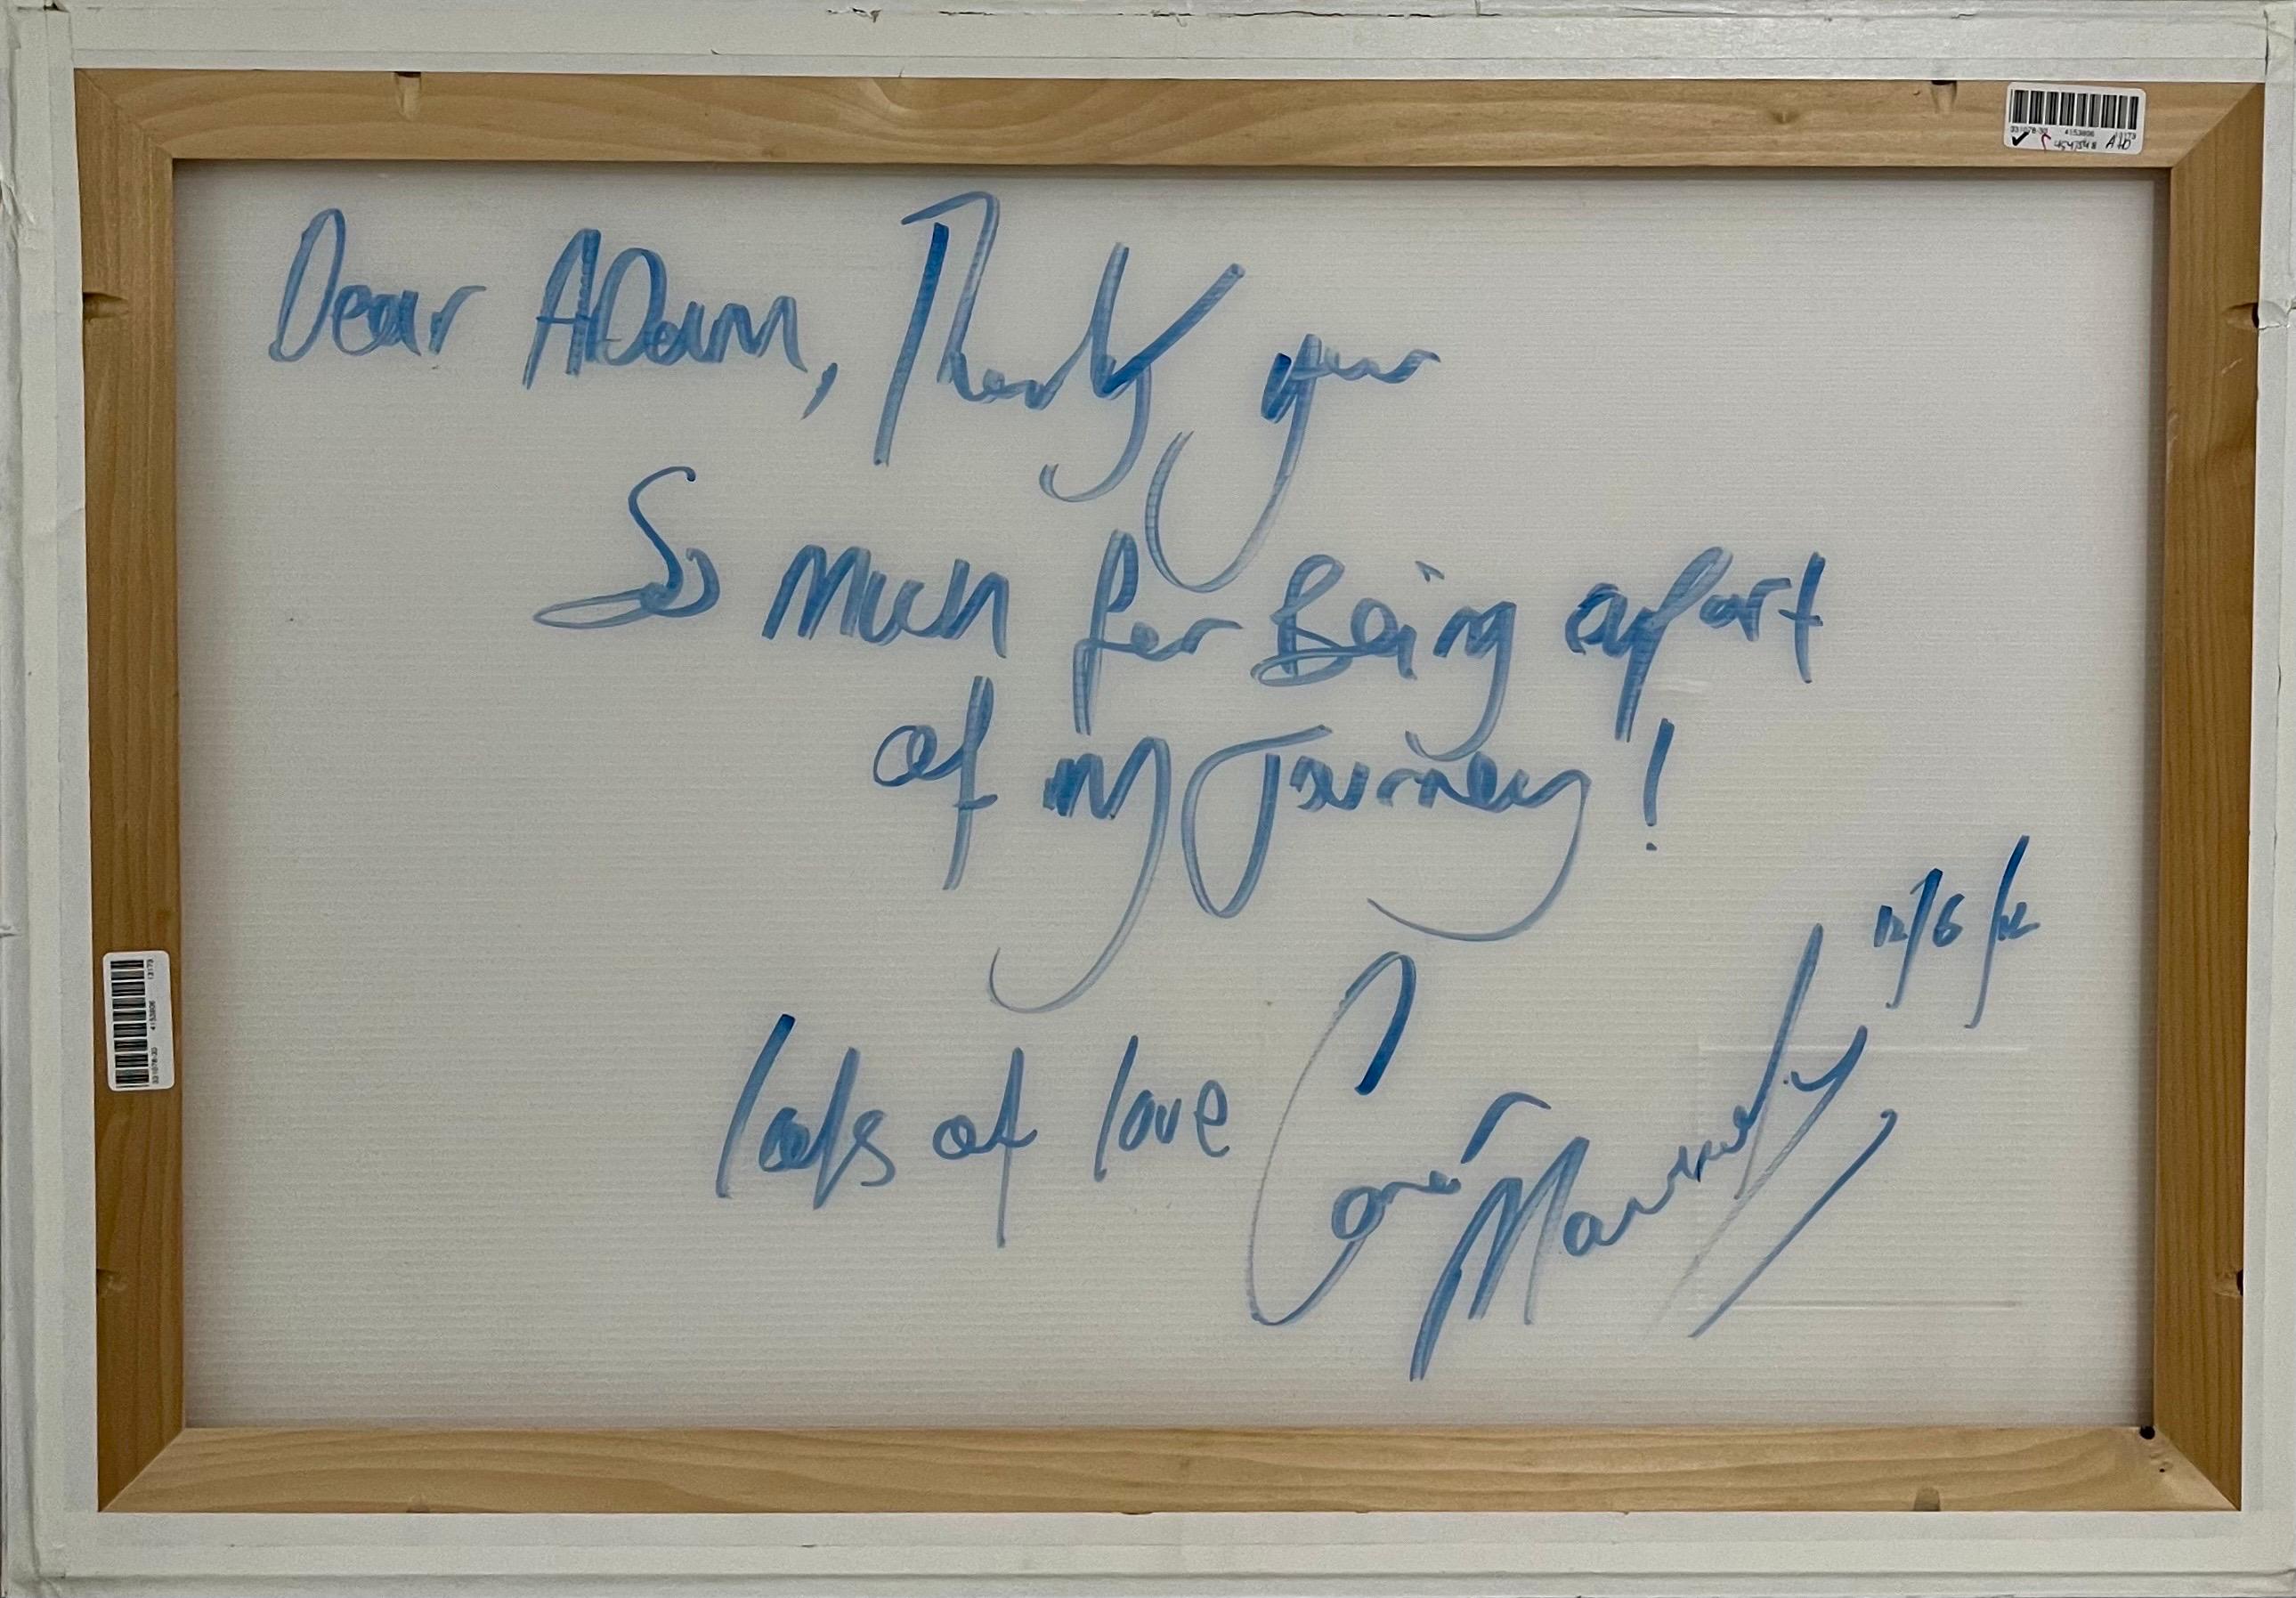 Dear ADam, Thank you
So Much for Being apart
of my Journey!
lots of love
12/6/12
331078-30 4153806 13173
331078-30 4153806 13173